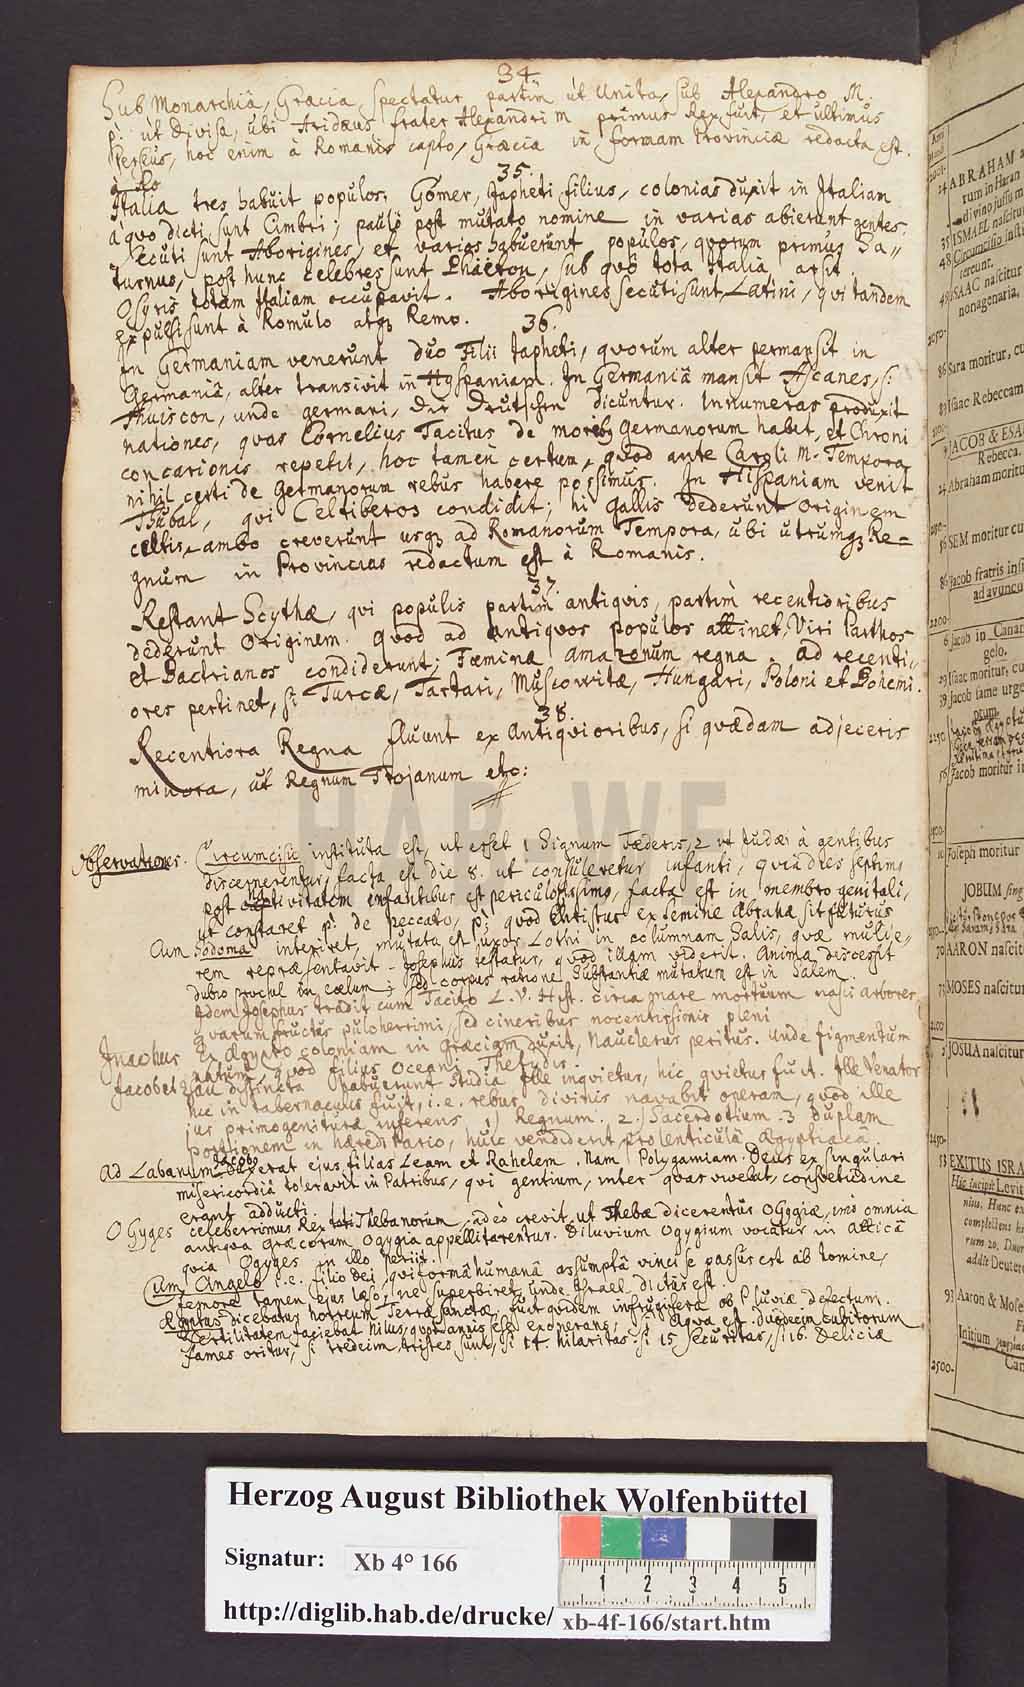 34.
Sub Monarchiâ, Græcia, spectatur partim ut Unita, sub Alexandro M.
p: ut divisa, ubi Aridæus frater Alexandri M primus Rex fuit, et ultimus
Perseus, hoc enim à Romanis capto, Græcia in formam Provinciæ redacta est.
35.
Italia tres habuit populos. Gomer, Japheti filius, colonias duxit in Italiam
a quo dicti sunt Cimbri; paulò post mutato nomine in varias abierunt gentes.
Secuti sunt Aborigines, et varios habuerunt populos, quorum primus Sa=
turnus, post hunc celebres sunt Phaëton, sub quô tota Italia arsit.
Osyris totam Italiam occupavit. Aborigines secuti sunt Latini, qvi tandem
expulsi sunt à Romulo atq3 Remo.
36.
In Germaniam venerunt duo Filii Japheti, qvorum alter permansit in
Germaniâ, alter transivit in Hyspaniam. In Germaniâ mansit Ascanes, s:
Thuiscon, unde germani, der Deutschen dicuntur. Innumeras produxit
nationes, qvas Cornelius Tacitus de moreb3 Germanorum habet, et Chroni
con carionis repetit, hoc tamen certum, quod ante Caroli M. Tempora
nihil certi de Germanorum rebus habere possimus. In Hispaniam venit
Thubal, qvi Celtiberos condidit; hi gallis dederunt originem
celtis, ambo creverunt usq3 ad Romanorum Tempora, ubi utrumq3 Re=
gnum in Provincias redactum est à Romanis.
37.
Restant Scythæ, qvi populis partim antiquis, partim recentioribus
dederunt Originem. Quod ad antiquos populos attinet, Viri Parthos
et Bactrianos condiderunt; Fœminæ amazonum regna. Ad recenti=
ores pertinet, si Turcæ, Tartari, Muscowitæ, Hungari, Poloni et Bohemi.
38.
Recentiora Regna fluunt ex Antiqvioribus, si quædam adjeceris
minora, ut Regnum Trojanum etc:
Observationes. Circumcisio instituta est, ut esset 1 Signum Fæderis, 2 ut Judæi à gentibus
discernerentur, facta est die 8. ut consuleretur infanti, quia dies septimus
post nativitatem infantibus est periculosissimus, facta est in membro genitali,
ut constaret p: de peccato, p: quod Christus ex semine Abrahæ sit futurus
Cum Sodoma interiret, mutata est uxor Lothi in columnam Salis, quæ mulie=
rem repræsentavit. Josephus testatur, quod illam viderit. Anima discessit
dubio procul in cœlum; sed corpus ratione Substantiæ mutatum est in Salem.
Idem Josephus tradit cum Tacito L. V. Hist. circa mare mortuum nasci arbores
quarum fructus pulcherrimi, sed cineribus nocentissimis pleni
Inachus Ex Ægypto coloniam in Græciam duxit, Nauclerus peritus. Unde figmentum
natum, quod filius Oceani Thetidis.
Jacobet Esau distincta habuerunt Studia ille inqvietus, hic qvietus fuit. Ille Venator
hic in tabernaculis fuit, i.e. rebus divinis navabit operam, quod ille
jus primogenituræ inferens 1) Regnum. 2.) Sacerdotium. 3 duplam
portionem in hæreditario, huic vendiderit pro lenticulâ Ægyptiacâ.
Jacob
Ad Labanum ejus filias Leam et Rahelem. Nam Polygamiam Deus ex singulari
misericordiâ toleravit in Patribus, qvi gentium, inter quas vivebat, consvetudine
erant adducti.
OGyges celeberrimus Rex Thebanorum, adeò crevit, ut Thebæ dicerentur OGygiæ, imò omnia
antiqua Græcorum Ogygia appellitarentur. Diluvium Ogygium vocatur in Atticâ
quia Ogyges in illo periit.
Cum Angelo i.e. filio Dei, qvi formâ humanâ assumptâ vinci se passus est ab homine,
femore tamen ejus læso, ne superbiret, unde Israel dictus est.
Ægyptus dicebatur horreum Terræ sanctæ. fuit qvidem infrugifera ob Pluviæ defectum.
Fertilitatem faciebat Nilus, quotannis esse exonerans, Aqva est duodecim cubitorum
fames oritur, si tredecim, tristes sunt, si 14. hilaritas, si 15 securitas, si 16. Deliciæ
Anni
ABRAHAM
rum in Haran
divino jussu m
ISMAEL nascitur
Circumcisio insti
ISAAC nascitur
nonagenaria,
2050-
Sara moritur, cu
Isaac Rebeccam
JACOB & ESA
Rebecca.
Abraham moritu
SEM moritur cu
Jacob fratris insi
ad avuncu
2200-
Jacob in Canan
gelo.
Isaac moritur, cu
Jacob fame urge
ptum.
Jacob moritur i
Joseph moritur
JOBUM sing
AARON nascit
MOSES nascitur
JOSUA nascitur
EXITUS ISRA
Hic incipit Levit
nius, Hunc ex
addit Deutero
93 Aaron & Mose
Initium
Can
2500-
HAB WF
Herzog August Bibliothek Wolfenbüttel
Signatur: Xb 4° 166
1 2 3 4 5
http://diglib.hab.de/drucke/ xb-4f-166/start.htm